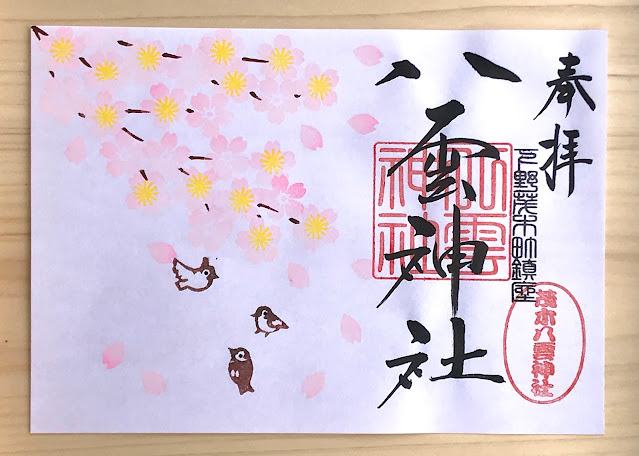 奉拝
下野茂木町鎮座
茂木八雲神社
八雲神社
八雲
神社